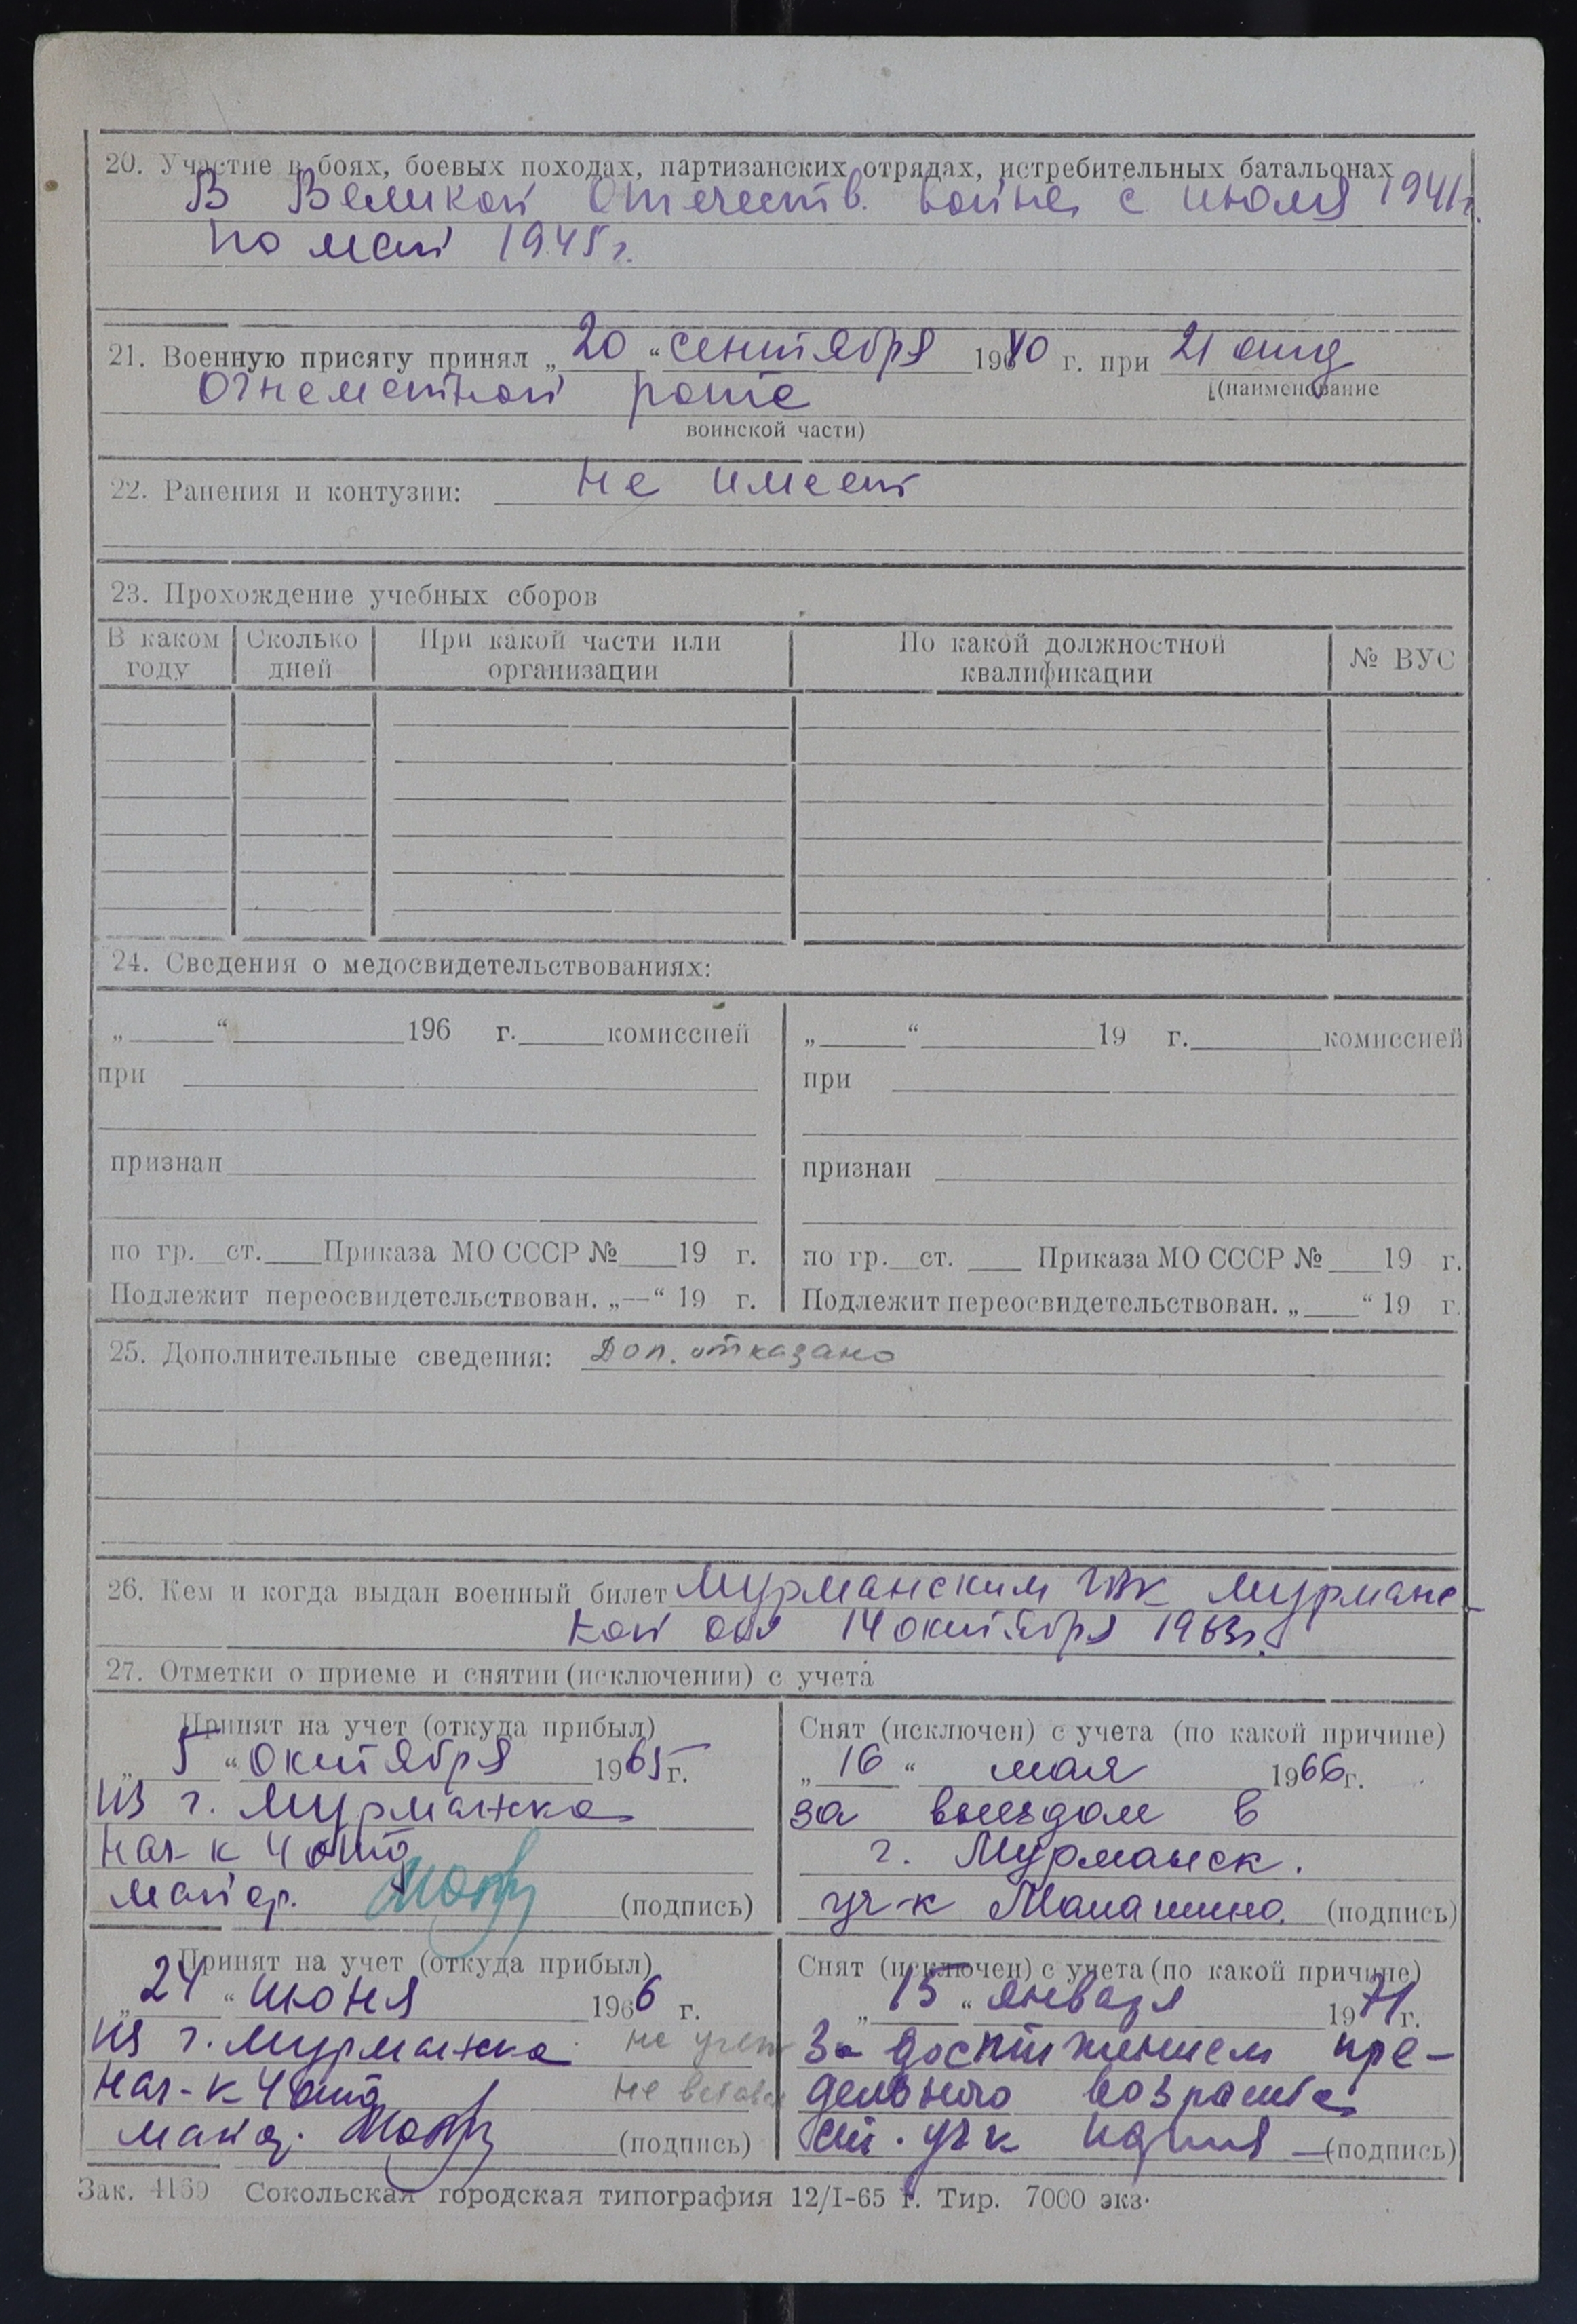 20. Участие в боях, боевых походах, партизанских отрядах, истребительных батальонах
В Великой Отечеств. войне с июля 1941г.
по май 1945 г.
21. Военную присягу принял „20“ сентября 1940 г. при 21 отд
(наименование
Огнеметной роте
воинской части)
22. Ранения и контузии: не имеет
23. Прохождение учебных сборов
В каком Сколько При какой части или По какой должностной № ВУС
году дней организации квалификации
24. Сведения о медосвидетельствованиях:
„ “ 196 г. комиссией „ “ 19 г. комиссией
при при
признан признан
по гр. ст. Приказа МО СССР № 19 г. по гр. ст. Приказа МО СССР № 19 г.
Подлежит переосвидетельствован. „—“ 19 г. Подлежит переосвидетельствован. „ “ 19 г.
25. Дополнительные сведения: Доп. отказано
26. Кем и когда выдан военный билет Мурманским ГВК Мурманс-
кой обл 14 октября 1963г.
27. Отметки о приеме и снятии (исключении) с учета
Принят на учет (откуда прибыл) Снят (исключен) с учета (по какой причине)
„5“ октября 1965 г. „16“ мая 1966 г.
из г. Мурманска за выездом в
нач-к 4 отд г. Мурманск.
майор. (подпись) уч-к (подпись)
Принят на учет (откуда прибыл) Снят (исключен) с учета (по какой причине)
„24“ июня 1966 г. „15“ января 1971 г.
из г. Мурманска на учет За достижением пре-
нач-к 4 отд не дельного возраста
майор. (подпись) ст. уч-к (подпись)
Зак. 4169 Сокольская городская типография 12/I-65 г. Тир. 7000 экз.